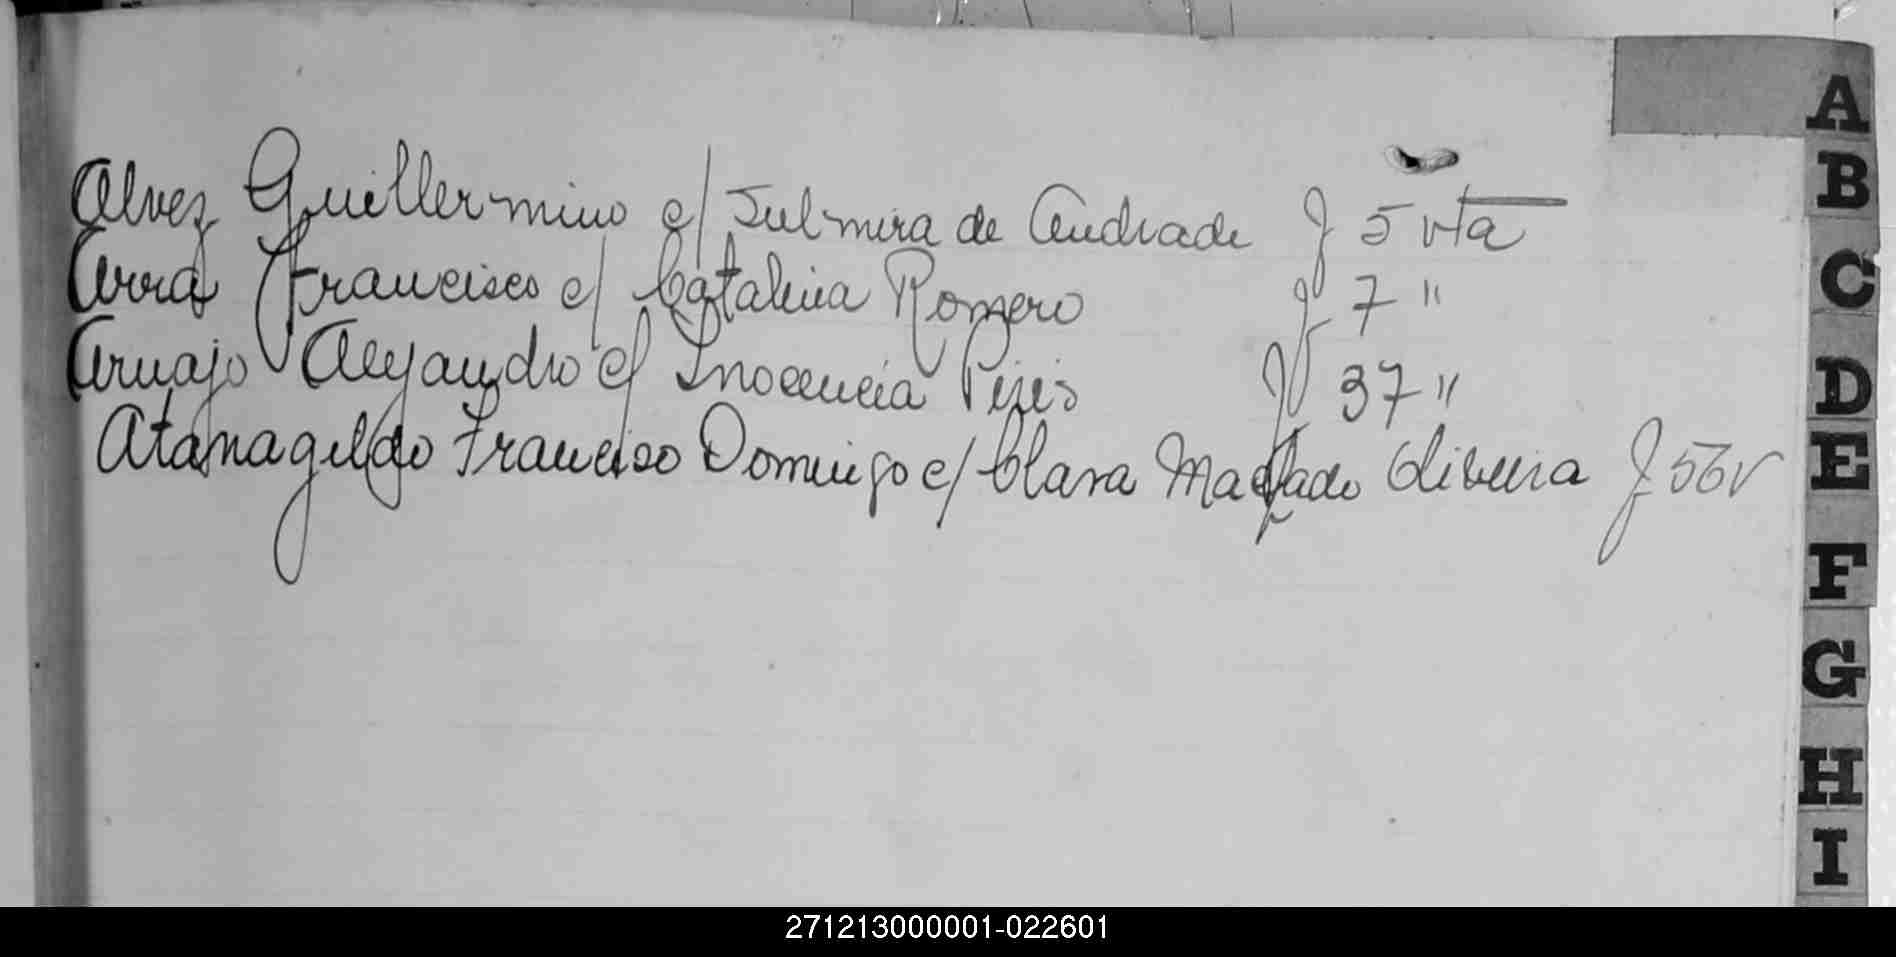 Alvez Guillermino c/ Julmira de Andrade f 5 vta
Arra Francisco c/ Catalina Romero f 7 "
Aruajo Alejandro c/ Inocencia Piris f 37 "
Atanagildo Francisco Domingo c/ Clara Machado Oliveira f 56v
A
B
C
D
E
F
G
H
I
271213000001-022601